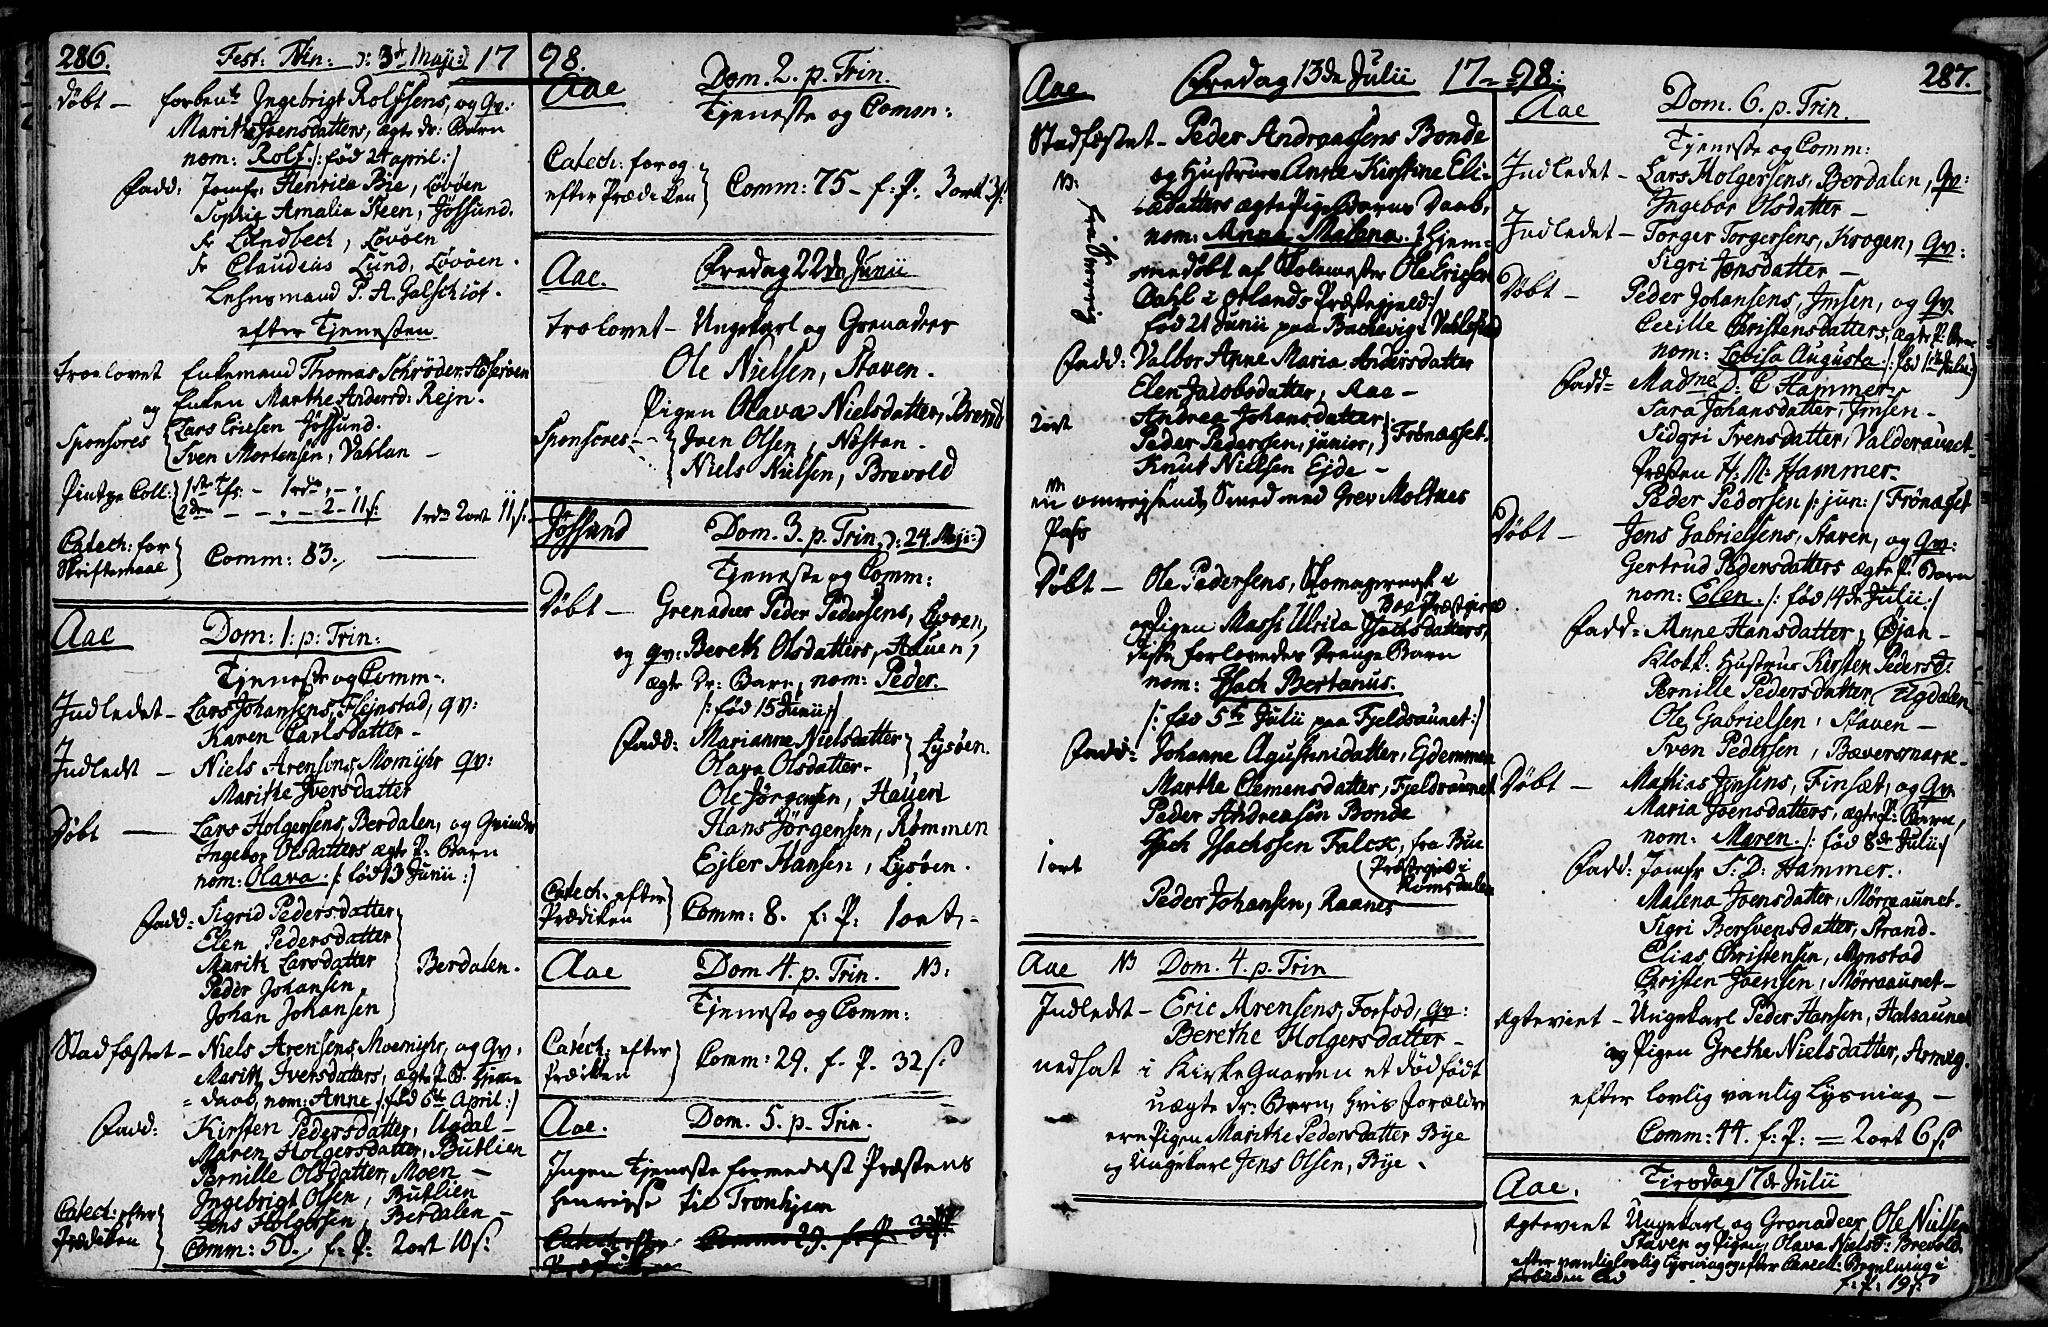 286.
Fest: Trin: ɔ: 3die Maji:) 17
Døbt - forbente Ingebrigt Rolfsens, og qv:
Marithe Joensdatters, ægte dr: Barn
nom: Rolf. /: fød 24 april:/
Fadd: Jomfr: Henrica Bie, Løvøen
Sophie Amalia Steen, Jøssund.
Hr Lundbech, Løvøen
Hr Claudius Lund, Løvøen.
Lehnsmand P. A. Galschiöt.
efter Tjenesten
Troelovet Enkemand Thomas Schrøder
og Enken Marthe Andersd: Rejn.
Sponsores Lars Ericsen Jøssund.
Sven Mortensen, Vahlan -
Catech: for Skriftemaal
Comm: 83.
Aae Dom: 1. p: Trin:
Tjeneste og Comm-.
Indledet - Lars Johansens, Flejnstad, qv:
Karen Carlsdatter -
Indledt - Niels Arensens Momyhr qv:
Marithe Iversdatter
Døbt - Lars Holgersens, Berdalen, og Qvinde
Ingebor Olsdatters ægte P: Barn
nom: Olava. /: fød 13 Junii:/
Fadd: Sigrid Pedersdatter
Elen Pedersdatter
Marith Larsdatter
Peder Johansen
Johan Johansen
Berdalen.
Stadfæstet - Niels Arensens, Moemyhr, og qv:
Marith Iversdatters, ægte P. B. Hjemme
= daab, nom: Anne /: fød 6te April:/
Fadd: Kirsten Pedersdatter, Ugdal -
Maren Holgersdatter, Butlien
Pernille Olsdatter, Moen -
Ingebrigt Olsen, Butlien
Jens Holgersen, Berdalen -
Catech: efter Prædiken
Comm: 50. f: P: 2 ort 10 s:
98.
Aae Dom. 2. p. Trin.
Tjeneste og Comm:
Catech: for og efter Prædiken
Comm: 75 - f: P. 3 ort 3 s:
Aae. Fredag 22de Junii
Trolovet - Ungekarl og Grenadeer
Ole Nielsen, Staven.
Pigen Olava Nielsdatter, Brevold
Sponsores - Joen Olsen, Nestan -
Niels Nielsen, Brevold
Jøssund Dom. 3. p. Trin. ɔ: 24. Maji:)
Tjeneste og Comm:
Døbt - Grenadeer Peder Pedersens, Lysøen,
og qv: Bereth Olsdatters, Hauen,
ægte Dr: Barn, nom: Peder.
/: fød 15 Junii:/
Fadd: Marianne Nielsdatter
Olava Olsdatter -
Lysøen.
Ole Jørgensen, Hauen
Hans Jørgensen, Rømmen
Ejler Hansen, Lysøen.
Catech: efter Prædiken
Comm: 8. f: P: 1 ort, -
Aae Dom. 4. p. Trin. NB:
Tjeneste og Comm:
Catech: efter Prædiken
Comm: 29. f. P. 32 s:
Aae. Dom. 5. p. Trin.
Ingen Tjeneste formedelst Præstens
henrejse til Tronhjem
Catech: efter Prædiken Comm: 29. f. P. 32 s
Aae Fredag 13de Julii 17 - 98:
Stadfæstet - Peder Andreassens Bonde
og Hustrues Anne Kirstine Eli-
=ædatters ægte Pige Barns Daab,
nom: Anna Malena. /: hjem-
medøbt af Skolemester Ole Ericsen
Dahl i Ørlands Præstegjeld:/
fød 21 Junii paa Bachevig i Vahlsfiord
Fadd: Valbor Anne Maria Andersdatter
Elen Jacobsdatter, Aae -
Andrea Johansdatter
Peder Pedersen, junior,
Frønasset.
Knut Nielsen Ejde -
2 ort
en omrejsende Smed med Grev Moltkes
Pass
Døbt - Ole Pedersens, Skomagersvend i
og Pigen Massi Ulrica Isachsdatters,
disse forlovedes Drenge Barn
nom: Isach Bertanus.
/: fød 5te Julii paa Fjeldsaunet:/
Fadd: Johanne Agustinidatter, Ejdemmen
Marthe Clemensdatter, Fjeldsaunet
Peder Andreasen Bonde
1 ort Isach Isachssen Falck, fra Bue
Præstegield i Romsdalen
Peder Johansen, Raanes
Aae NB Dom. 4. p. Trin
Indledet - Eric Arensens, Forfod, qv:
Berethe Holgersdatter -
nedsat i Kirke Gaarden et dødfødt
uægte dr: Barn, hvis Forældre
ere Pigen Marithe Pedersdatter Bye
og Ungekarl Jens Olsen, Bye.
287.
Aae Dom. 6. p. Trin.
Tjeneste og Comm:
Indledet - Lars Holgersens, Berdalen, qv:
Ingebor Olsdatter -
Indledet - Torger Torgersens, Krogen, qv:
Sigri Jensdatter -
Døbt - Peder Johansens, Imsen, og qv.
Cecille Christensdatters, ægte P: Barn
nom: Lovisa Augusta. /: fød 1ste Julii:/
Fadd: Madme D: C Hammer
Sara Johansdatter, Imsen -
Sidgri Svensdatter, Valderaunet
Præsten H: M: Hammer -
Peder Pedersen /: jun: / Frønasset
Døbt - Jens Gabrielsens, Staven, og qv:
Gertrud Pedersdatters ægte P: Barn
nom: Elen. /: fød 14de Julii:/
Fadd: Anne Hansdatter, Bjan -
Klokk: Hustrue Kirsten Pedersd:
Pernille Pedersdatter Ugdalen
Ole Gabrielsen, Staven -
Sven Pedersen, Bæversmark -
Døbt - Mathias Jensens, Finsæt, og qv.
Maria Joensdatters, ægte P: Barn,
nom: Maren /: fød 8de Julii:/
Fadd: Jomfr S: D: Hammer.
Malena Joensdatter, Mørreaunet.
Sigri Bersvensdatter, Strand -
Elias Christensen, Monstad
Christen Joensen, Mørreaunet -
Ægteviet - Ungekarl Peder Hansen, Halsaunet
og Pigen Grethe Nielsdatter, Arnvig.
efter lovlig vanlig Lysning -
Comm: 44. f: P: = 2 ort 6 s:
Aae. Tirsdag 17de Julii
Ægteviet Ungekarl og Grenadeer Ole Nielsen
Staven og Pigen Olava Nielsd: Brevold,
efter vanlig lovlig Lysning og efter
f: P: 19 s: